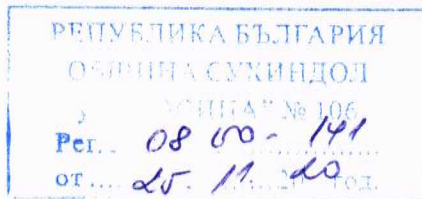 РЕПУБЛИКА БЪЛГАРИЯ
ОБЩИНА СУХИНДОЛ
№ 106
Рег... 08 00 - 141
от.... 25. 11. 20 год.